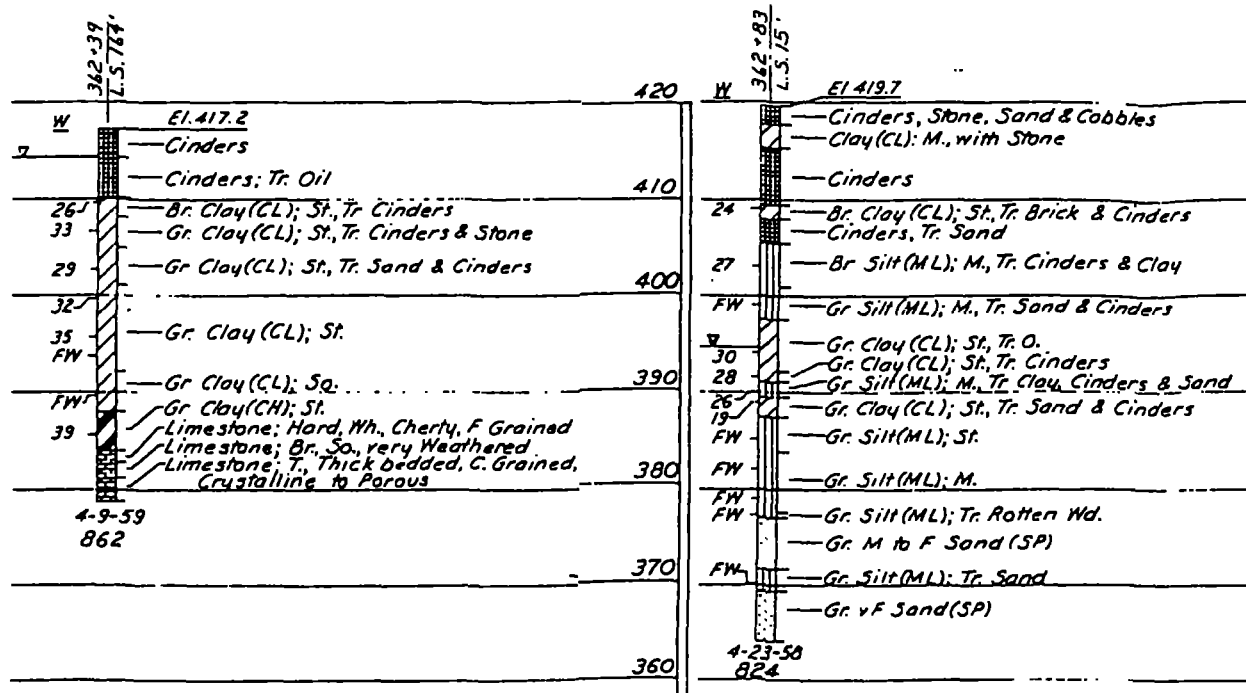 362+39
L.S. 764'
W
El. 417.2
Cinders
Cinders; Tr. Oil
26
Br. Clay (CL); St., Tr Cinders
33
Gr. Clay (CL); St., Tr. Cinders & Stone
29
Gr Clay (CL); St., Tr. Sand & Cinders
32
35
Gr. Clay (CL); St.
FW
Gr Clay (CL); So.
FW
Gr Clay (CH); St.
39
Limestone; Hard, Wh., Cherty, F Grained
Limestone; Br., So., very Weathered
Limestone; T., Thick bedded, C. Grained,
Crystalline to Porous
4-9-59
862
420
410
400
390
380
370
360
362+83
L.S. 15'
W
El 419.7
Cinders, Stone, Sand & Cobbles
Clay (CL): M., with Stone
Cinders
24
Br. Clay (CL); St., Tr. Brick & Cinders
Cinders, Tr. Sand
27
Br Silt (ML); M., Tr. Cinders & Clay
FW
Gr Silt (ML); M., Tr. Sand & Cinders
Gr. Clay (CL); St., Tr. O.
30
Gr. Clay (CL); St., Tr. Cinders
28
Gr Silt (ML); M., Tr Clay, Cinders & Sand
26
19
Gr. Clay (CL); St., Tr. Sand & Cinders
FW
Gr. Silt (ML); St.
FW
Gr. Silt (ML); M.
FW
FW
Gr. Silt (ML); Tr. Rotten Wd.
Gr. M to F Sand (SP)
FW
Gr. Silt (ML); Tr. Sand
Gr. vF Sand (SP)
4-23-58
824